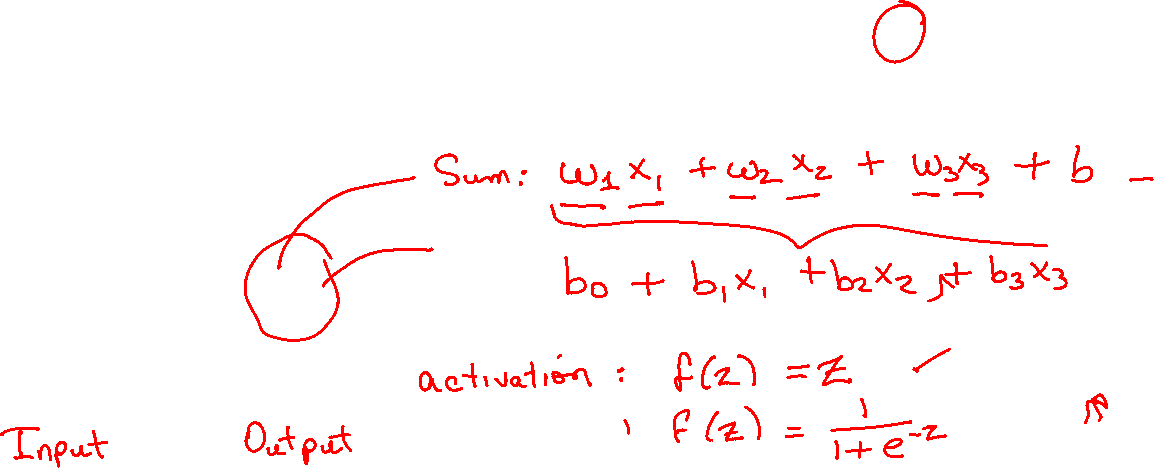 Sum: w1 x1 + w2 x2 + w3 x3 + b -
b0 + b1x1 + b2x2 + b3x3
activation : f(z) = z ✓
, f(z) = 1/(1+e^-z)
Input Output